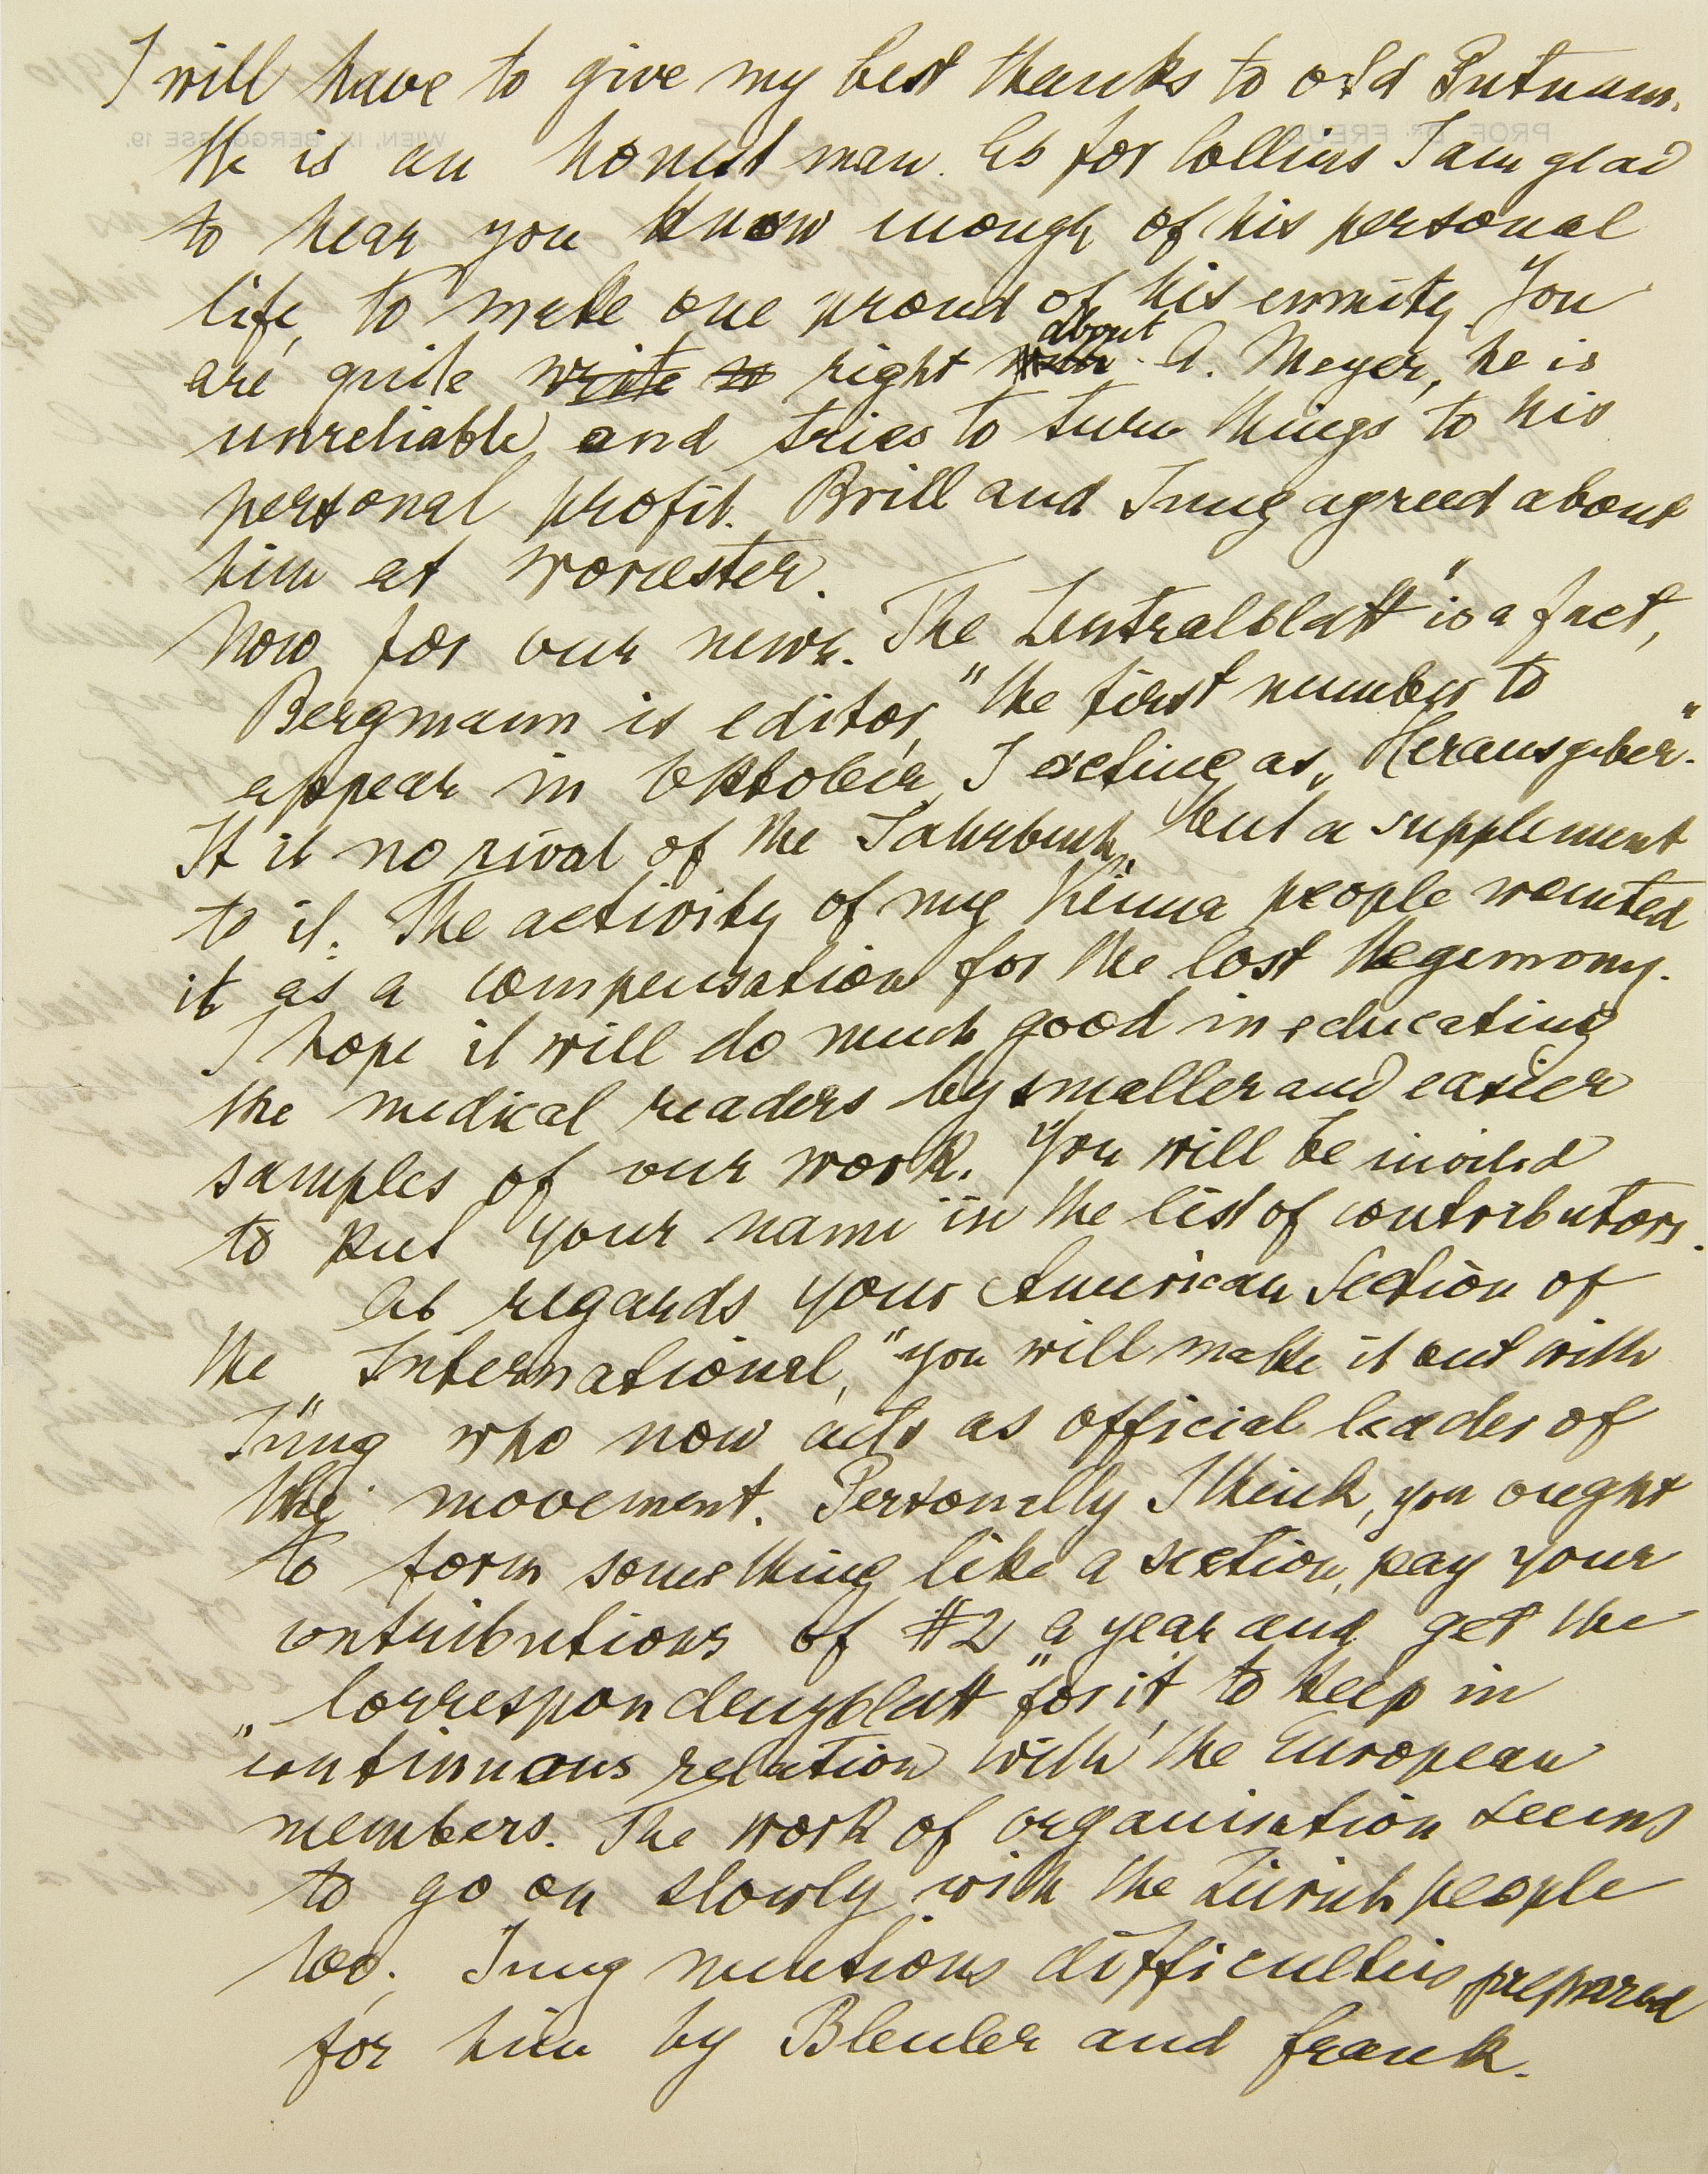 I will have to give my best thanks to old Putnam.
He is an honest man. As for Collins I am glad
to hear you know enough of his personal
life, to make one proud of his enmity. You
are quite write to right about A. Meyer, he is
unreliable and tries to turn things to his
personal profit. Brill and Jung agreed about
him at Worcester.
Now for our news. The „Zentralblatt“ is a fact,
Bergmann is editor, the first number to
appear in Oktober, I acting as „Herausgeber“.
It is no rival of the „Jahrbuch“ but a supplement
to it. The activity of my Vienna people wanted
it as a compensation for the lost hegemony.
I hope it will do much good in educating
the medical readers by smaller and easier
samples of our work. You will be invited
to put your name in the list of contributors.
As regards your American Section of
the „International,“ you will make it out with
Jung who now acts as official leader of
the movement. Personally I think, you ought
to form something like a section, pay your
contributions of $2 a year and get the
„Correspondenzblatt“ for it, to keep in
continuous relation with the European
members. The work of organisation seems
to go on slowly with the Zürich people
too. Jung mentions difficulties prepared
for him by Bleuler and Frank.
PROF. DR. FREUD
WIEN, IX. BERGGASSE 19.